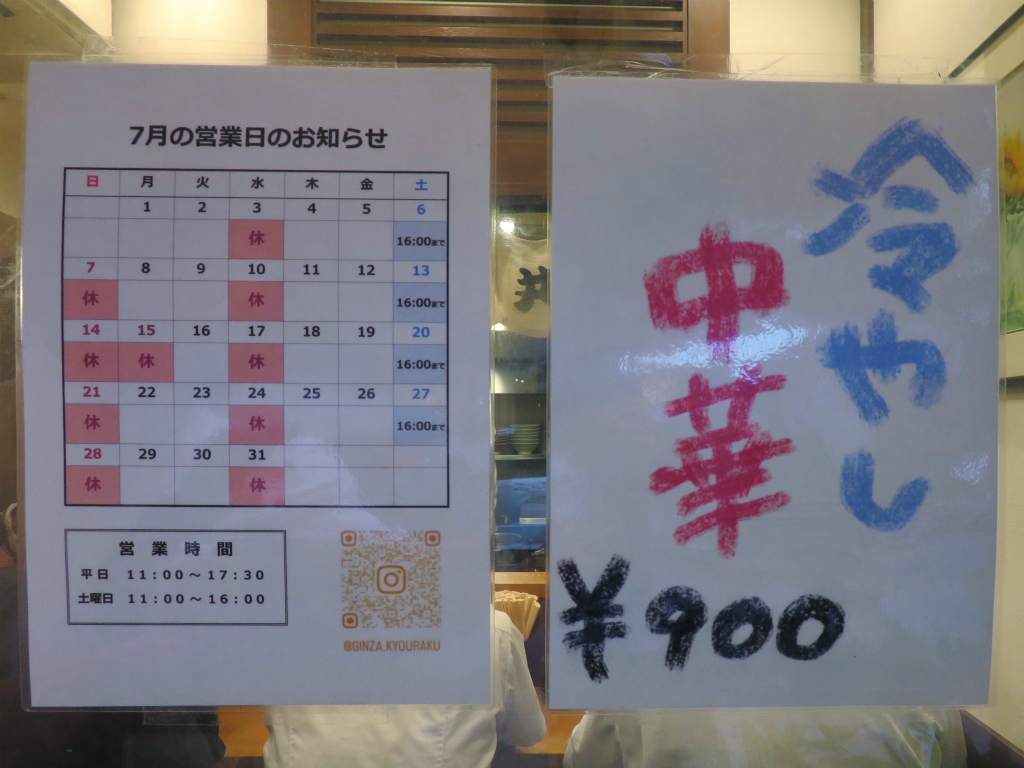 7月の営業日のお知らせ
日 月 火 水 木 金 土
1 2 3 4 5 6
休 16:00まで
7 8 9 10 11 12 13
休 休 16:00まで
14 15 16 17 18 19 20
休 休 休 16:00まで
21 22 23 24 25 26 27
休 休 16:00まで
28 29 30 31
休 休
営業時間
平日 11:00～17:30
土曜日 11:00～16:00
@GINZA.KYOURAKU
冷やし
中華
¥900